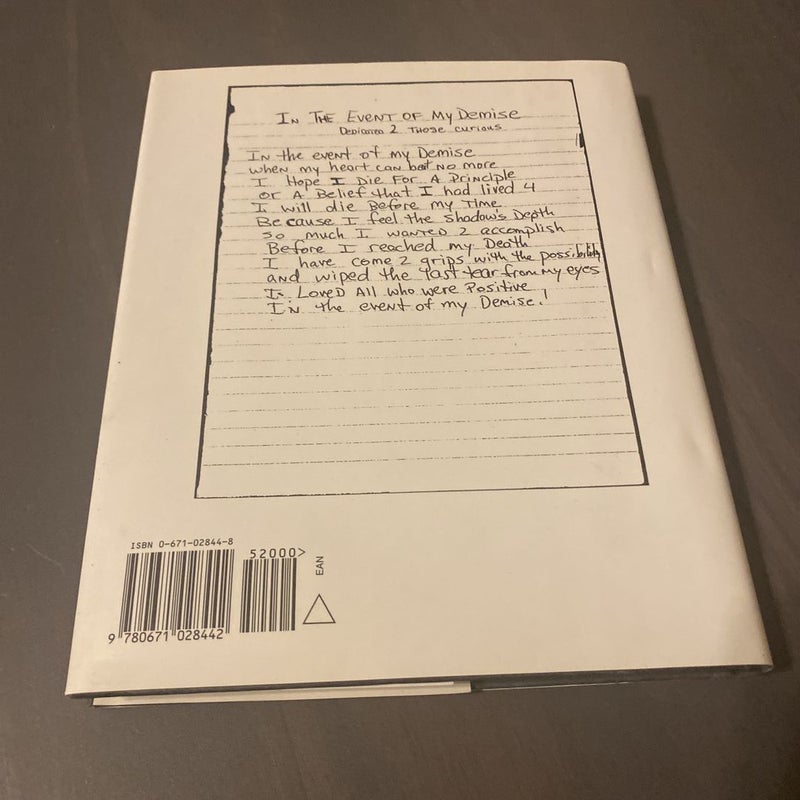 IN THE EVENT OF My Demise
Dedicated 2 Those curious
IN the event of my Demise
when my heart can beat no more
I Hope I Die For A Principle
or A Belief that I had lived 4
I will die Before my Time
Because I feel the shadow's Depth
so much I wanted 2 accomplish
Before I reached my Death
I have come 2 grips with the possibility
and wiped the last tear from My eyes
I Loved All who were Positive
In the event of my Demise!
ISBN 0-671-02844-8
52000>
EAN
9 780671 028442